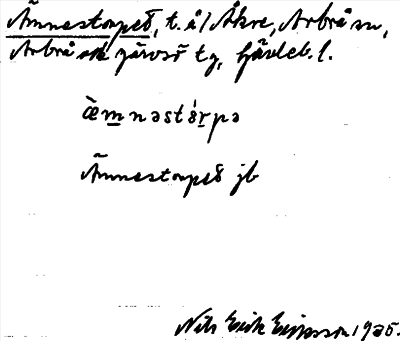 Ämnestorpet, t. å / Åkre, Arbrå sn,
Arbrå och Järvsö tg, Gävleb. l.
æ̀mnəstórpə
Ämnestorpet jb
Nils Erik Eriksson 1935.